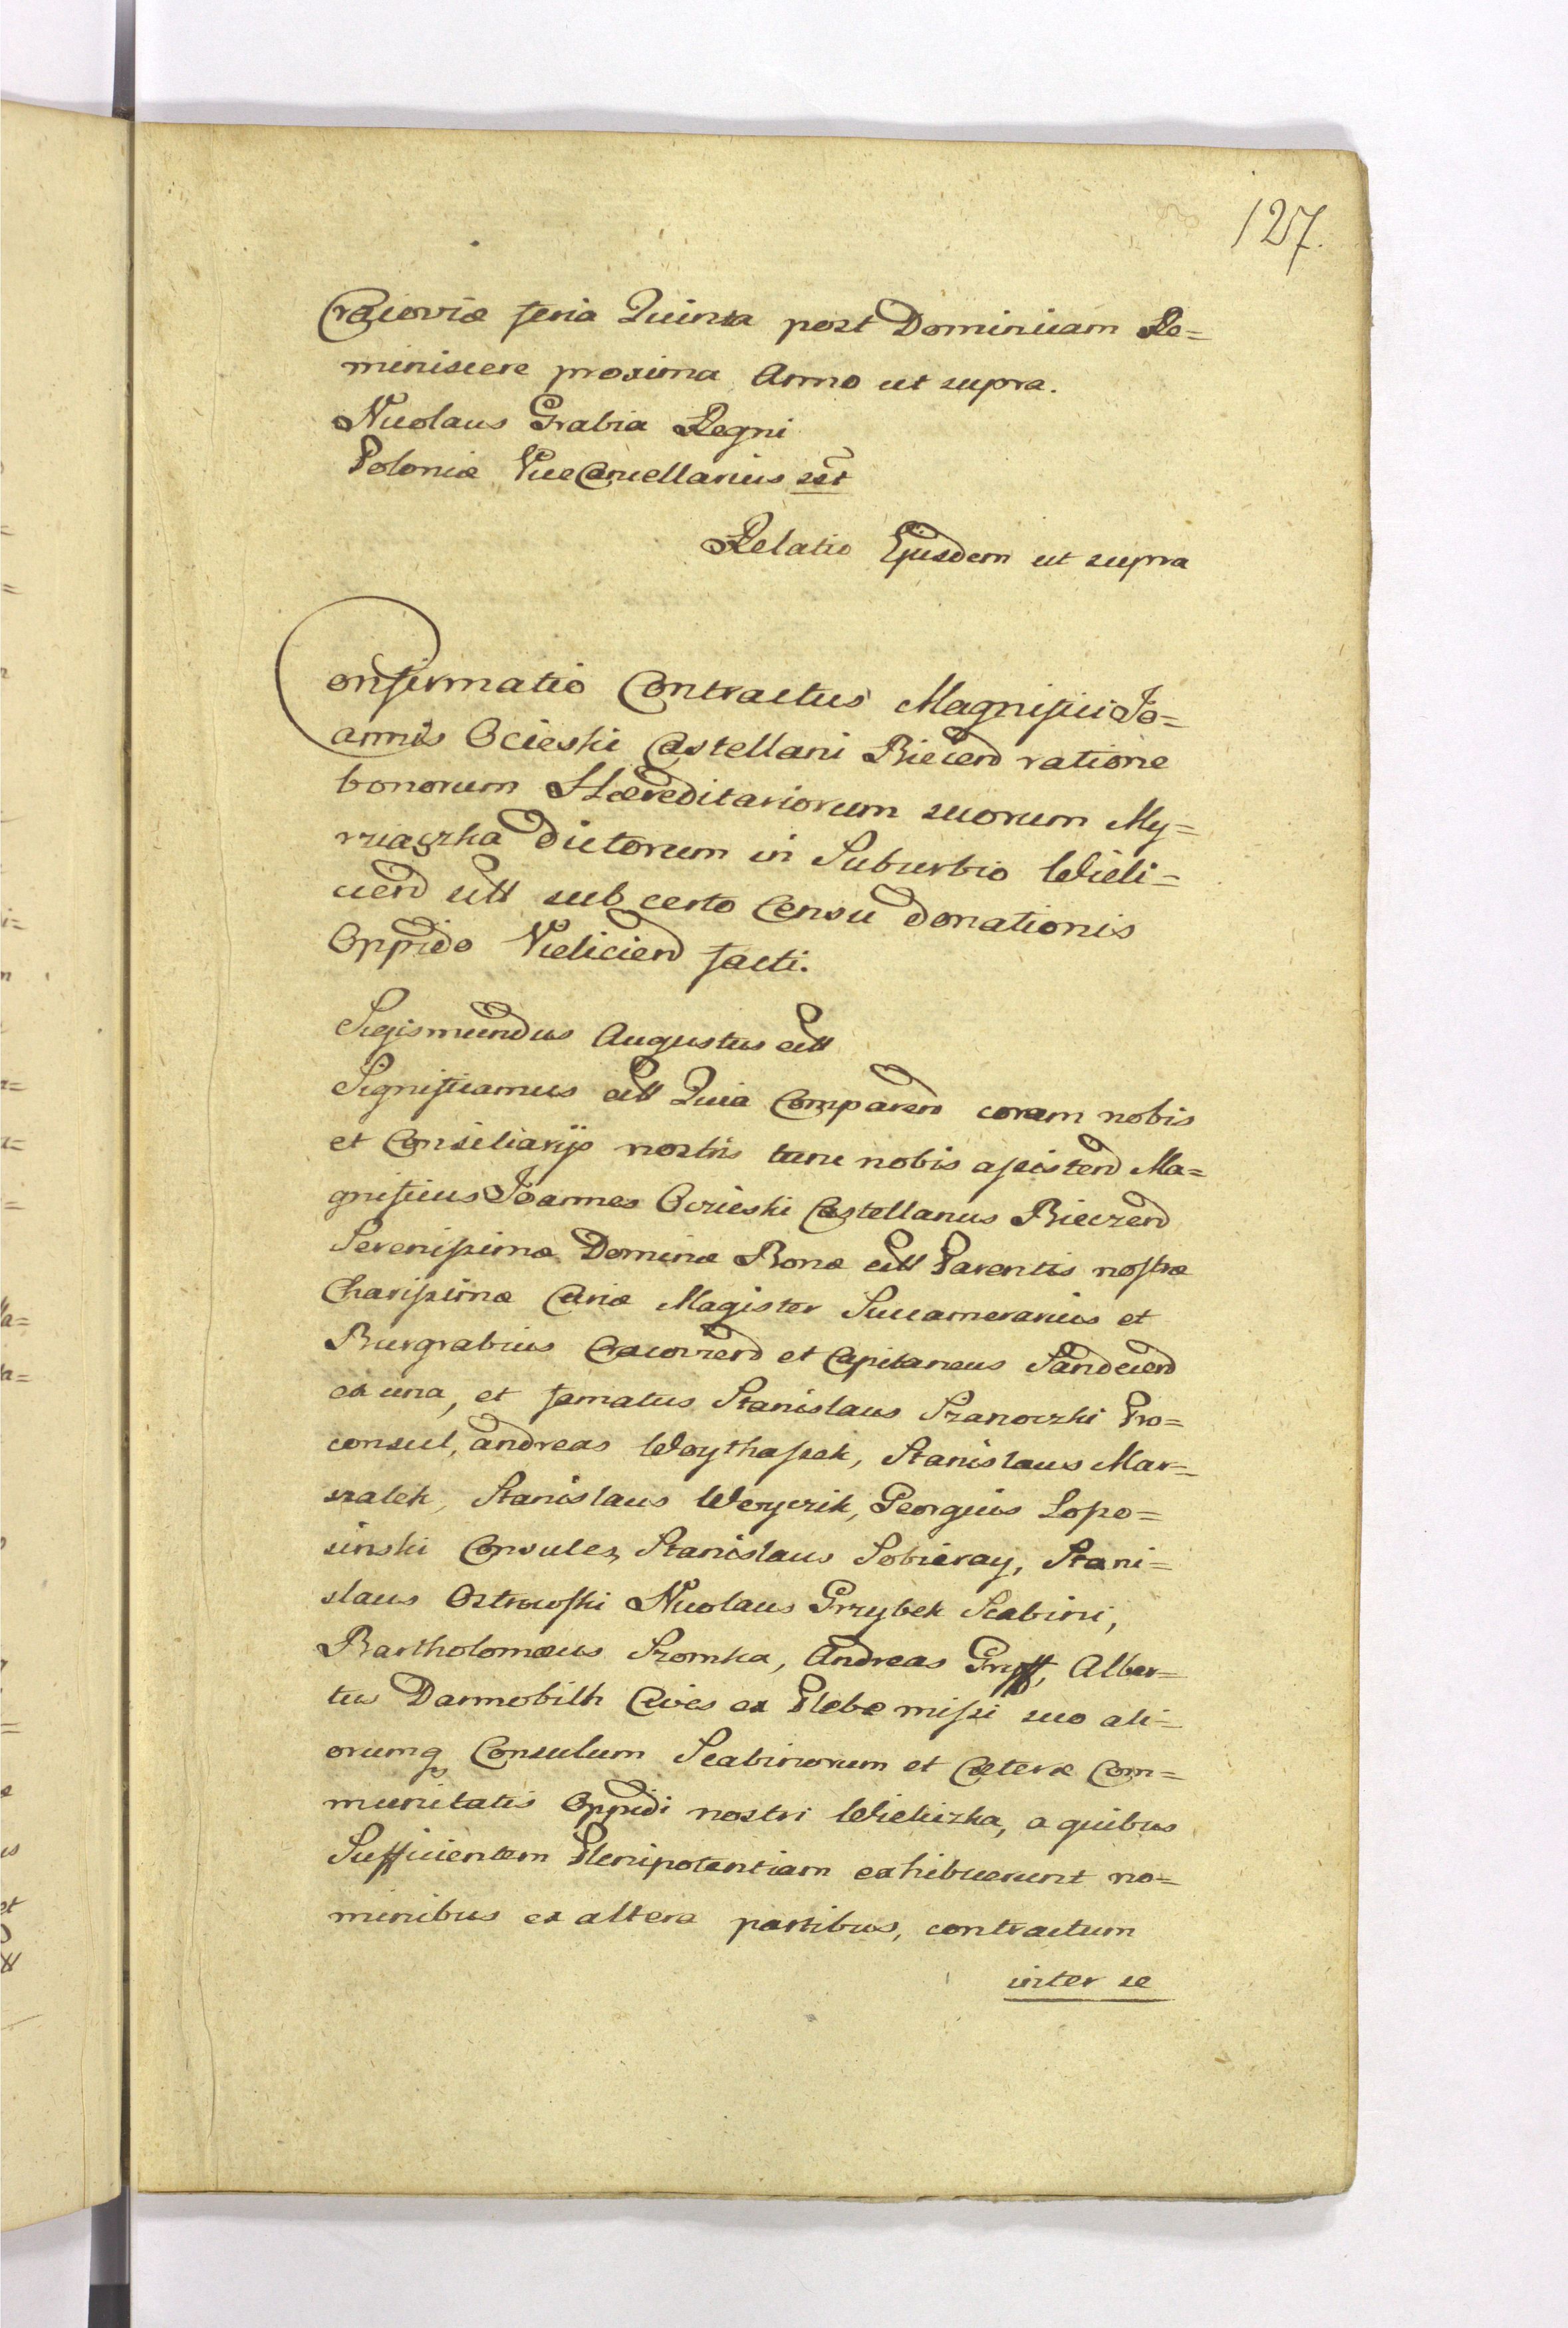 127.
Cracioviæ feria Quinta post Dominicam Re=
miniscere proxima Anno ut supra.
Nicolaus Grabia Regni
Poloniæ ViceCancellarius sst
Relatio Ejusdem ut supra
Confirmatio Contractus Magnifici Jo=
annis Ocieski Castellani Biecen ratione
bonorum Hæreditariorum suorum My=
rziaczka dictorum in Suburbio Wieli=
cien sitt sub certo Censu donationis
Oppido Vielicien facti.
Sigismundus Augustus ett
Significamus ett Quia Comparen coram nobis
et Consiliarijs nostris tunc nobis assisten Ma=
gnificus Joannes Oczieski Castellanus Bieczen
Serenissimæ Dominæ Bonæ ett Parentis nostræ
Charissimæ Curiæ Magister Succamerarius et
Burgrabius Cracovien et Capitaneus Sandecien
ex una, et famatus Stanislaus Szanoczki Pro=
consul, Andreas Woythaszek, Stanislaus Mar=
szalek, Stanislaus Weryczik, Georgius Lopo=
sinski Consules, Stanislaus Sobieray, Stani=
slaus Ostrowski Nicolaus Grzybek Scabini,
Bartholomæus Szomka, Andreas Gryff, Alber=
tus Darmobith Cives ex Plebe missi suo ali=
orumq Consulum Scabinorum et Cæteræ Com=
munitatis Oppidi nostri Wieliczka, a quibus
Sufficientem Plenipotentiam exhibuerunt no=
minibus ex altera partibus, contractum
inter se